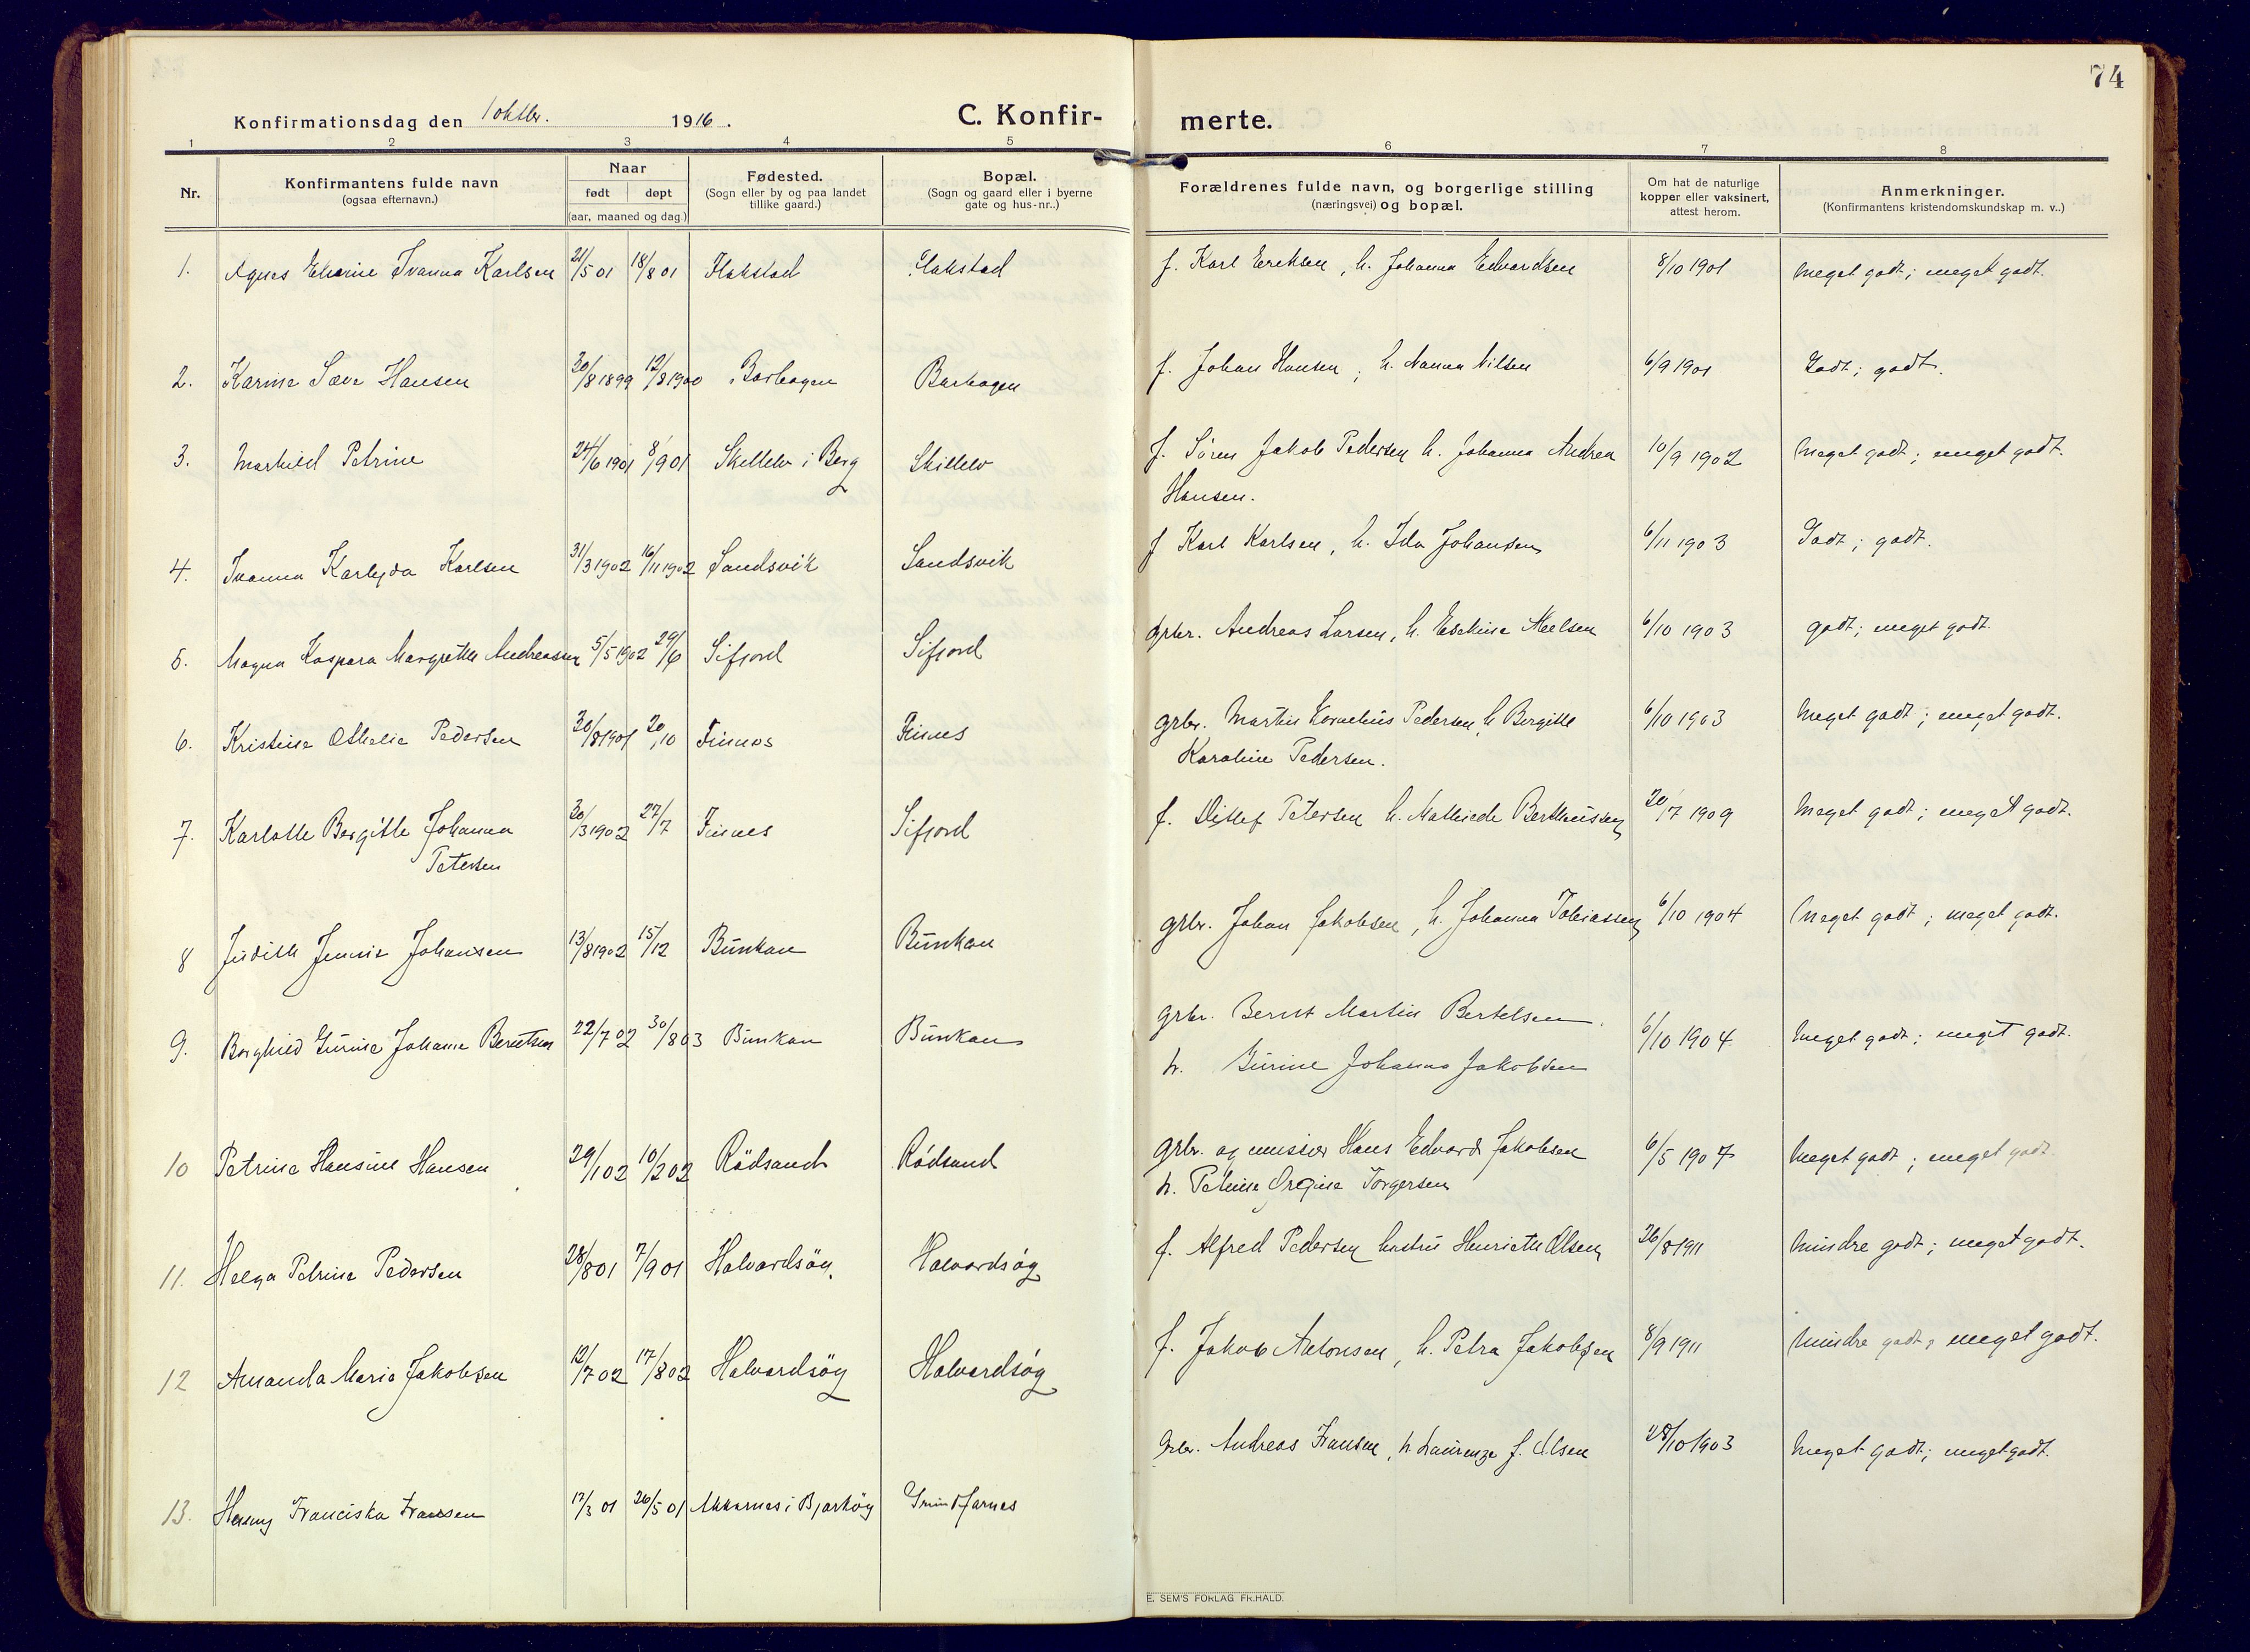 74
Konfirmationsdag den 1 oktbr. 1916.
C. Konfir-
merte.
1 2 3 4 5 6 7 8
Nr.
Konfirmantens fulde navn
(ogsaa efternavn.)
Naar
født døpt
(aar, maaned og dag.)
Fødested.
(Sogn eller by og paa landet
tillike gaard.)
Bopæl.
(Sogn og gaard eller i byerne
gate og hus-nr..)
Forældrenes fulde navn, og borgerlige stilling
(næringsvei) og bopæl.
Om hat de naturlige
kopper eller vaksinert,
attest herom.
Anmerkninger.
(Konfirmantens kristendomskundskap m. v..)
1. Agnes Ivanna Karlsen 21/5 01 18/8 01 Flakstad Flakstad f. Karl Eriksen, h. Johanna Edvardsen 8/10 1901 Meget godt; meget godt.
2. Karine Hansen 30/8 1899 12/8 1900 Barhogen Barhogen f. Johan Hansen, h. Nanna Nilsen 6/9 1901 Godt; godt.
3. Marhild Petrine 24/6 1901 8/9 01 Skillelv i Berg Skillelv f. Sören Jakob Pedersen h. Johanna Andrea 10/9 1902 Meget godt; meget godt.
Hansen.
4. Ivanna Karlsen 31/3 1902 16/11 1902 Sandsvik Sandsvik f Karl Karlsen, h. Ida Johansen 6/11 1903 Godt; godt.
5. Magna Kaspara Margrethe Andreassen 5/5 1902 29/6 Sifjord Sifjord grbr. Andreas Larsen, h. 6/10 1903 godt; meget godt.
6. Kristine Othelie Pedersen 30/8 1901 20/10 Finnes Finnes grbr. Martin Kornelius Pedersen, h Bergitte 6/10 1903 Meget godt; meget godt.
Karoline Pedersen.
7. Karlotte Bergitte Johanna 30/3 1902 27/7 Finnes Sifjord f. Ditlef Petersen h. Bertheussen 20/7 1909 Meget godt; meget godt.
Petersen
8 Judith Jennie Johansen 13/8 1902 15/12 Bunkan Bunkan grbr. Johan Jakobsen, h. Johanna Tobiassen 6/10 1904 Meget godt; meget godt.
9. Borghild Gurine Johanne Berntsen 22/7 02 30/8 03 Bunkan Bunkan grbr. Bernt Martin Bertelsen 6/10 1904 Meget godt; meget godt.
h. Gurine Johanna Jakobsen
10 Petrine Hansine Hansen 29/1 02 10/2 02 Rödsand Rödsand grbr. og Hans Edvard Jakobsen 6/5 1904 Meget godt; meget godt.
h. Petrine Torgersen
11. Helga Petrine Pedersen 28/8 01 7/9 01 Halvardsöy Halvardsöy f. Alfred Pedersen hustru Henriette Olsen 26/8 1911 Mindre godt; meget godt.
12 Amanda Marie Jakobsen 12/7 02 17/8 02 Halvardsöy Halvardsöy f. Jakob Antonsen, h. Petra Jakobsen 8/9 1911 Mindre godt; meget godt.
13. Franciska Fransen 17/3 01 26/5 01 Akkarnes i Bjarköy Grr. Andreas Fransen, h Laurenze f. Olsen 28/10 1903 Meget godt; meget godt.
E. SEM'S FORLAG FR.HALD.